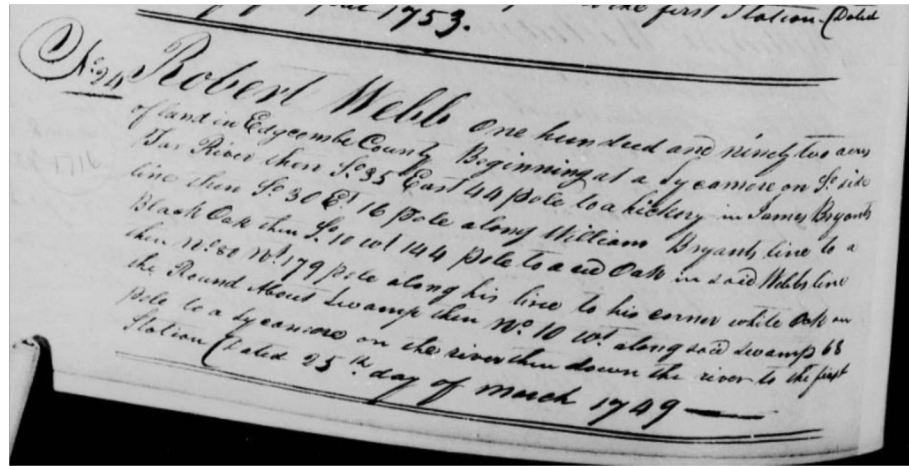 1753. the first Station. (Dated
No 24 Robert Webb One hundred and ninety two acres
of land in Edgecombe County Beginning at a Sycamore on So. side
Tar River then So. 35 East 44 pole to a hickory in James Bryants
line then So. 30 Et. 16 Pole along William Bryants line to a
Black Oak then So. 10 wt 144 pole to a red Oak in said Webbs line
then No. 80 Wt. 179 pole along his line to his corner white Oak on
the Round About Swamp then No. 10 wt along said swamp 68
pole to a Sycamore on the river then down the river to the first
Station (Dated 25th day of March 1749